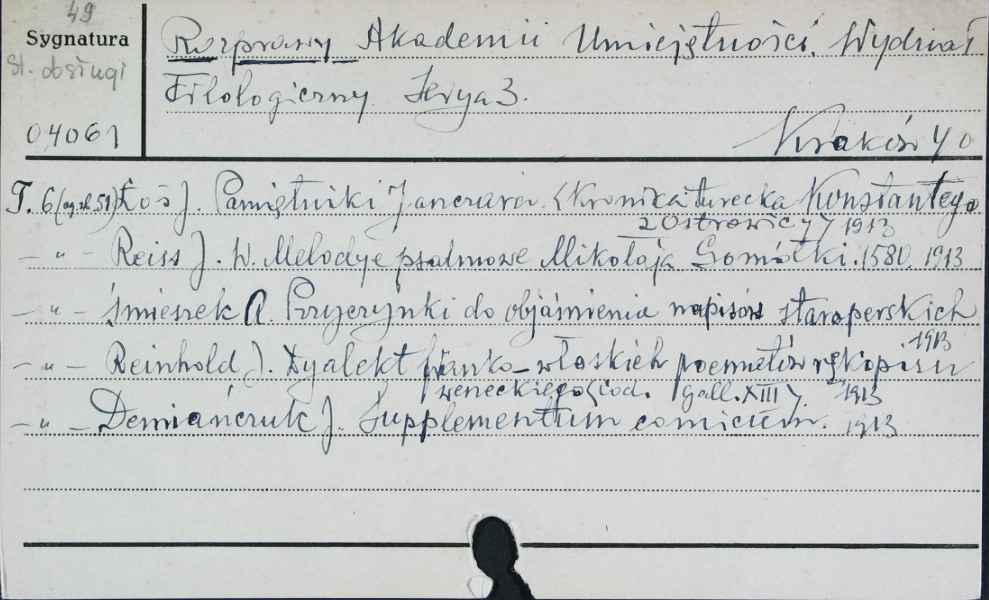 49
Sygnatura
st. obsługi
04061
Rozprawy Akademii Umiejętności. Wydział
Filologiczny. Serya 3.
Kraków 40
T. 6 (og. zb. 51) Łoś J. Pamiętniki Janczara (Kronika turecka Konstantego
z Ostrowicy) 1913
— " — Reiss J. W. Melodye psalmowe Mikołaja Gomółki. 1580. 1913
— " — Śmieszek A. Przyczynki do objaśnienia napisów staroperskich
1913
— " — Reinhold J. Dyalekt franko-włoskich poematów rękopisu
weneckiego (cod. gall. XIII). 1913
— " — Demiańczuk J. Supplementum comicum. 1913